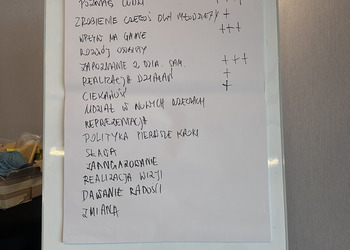 POZNAĆ LUDZI +++
ZROBIENIE CZEGOŚ DLA MŁODZIEŻY +
WPŁYW NA GMINĘ +++
ROZWÓJ OSOBISTY
ZAPOZNANIE Z DZIA. SAM. +++
REALIZACJA DZIAŁAŃ +
CIEKAWOŚĆ +
UDZIAŁ W NOWYCH RZECZACH
REPREZENTACJA
POLITYKA PIERWSZE KROKI
SŁAWA
ZAANGAŻOWANIE
REALIZACJA WIZJI
DAWANIE RADOŚCI
ZMIANA